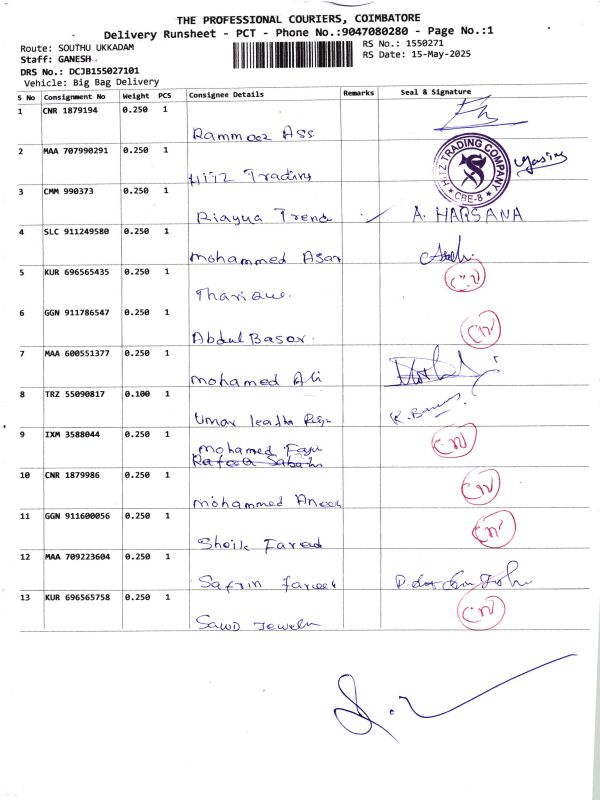 THE PROFESSIONAL COURIERS, COIMBATORE
Delivery Runsheet - PCT - Phone No.:9047080280 - Page No.:1
Route: SOUTHU UKKADAM
RS No.: 1550271
Staff: GANESH
RS Date: 15-May-2025
DRS No.: DCJB155027101
Vehicle: Big Bag Delivery
S No Consignment No Weight PCS Consignee Details Remarks Seal & Signature
1 CNR 1879194 0.250 1
Rammooz Ass
2 MAA 707990291 0.250 1
HITZ TRADING COMPANY * CBE-8 *
Yasin
Hitz Trading
3 CMM 990373 0.250 1
Riayua Trend A. HARSANA
4 SLC 911249580 0.250 1
Mohammed Asar
5 KUR 696565435 0.250 1 CN
Tharique.
6 GGN 911786547 0.250 1 CN
Abdul Basar.
7 MAA 600551377 0.250 1
Mohamed Ali
8 TRZ 55090817 0.100 1
Umar leatha
9 IXM 3588044 0.250 1 CN
Mohamed
Rafeea Sabahi
10 CNR 1879986 0.250 1 CN
Mohammed Anees
11 GGN 911600056 0.250 1 CN
Sheik Fareed
12 MAA 709223604 0.250 1
Safrin fareek
13 KUR 696565758 0.250 1 CN
Sawd Jewelu